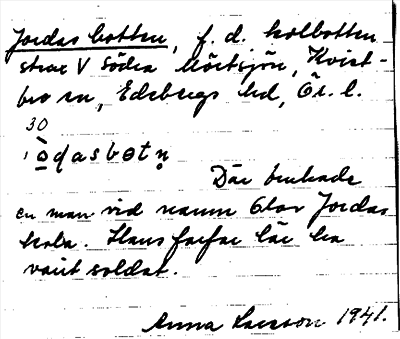 Jordasbotten, f. d. kolbotten
strax V Södra Mörtsjön, Kvist-
bro sn, Edsbergs hd, Ör. l.
30
ò̱ɖasbotn̥
Där brukade
en man vid namn Olov Jordas
kola. Hans farfar lär ha
varit soldat.
Anna Larsson 1941.